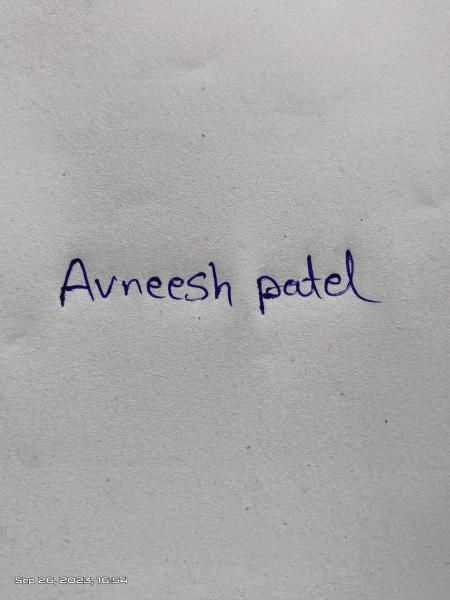 Avneesh patel
Sep 26, 2023, 16:54